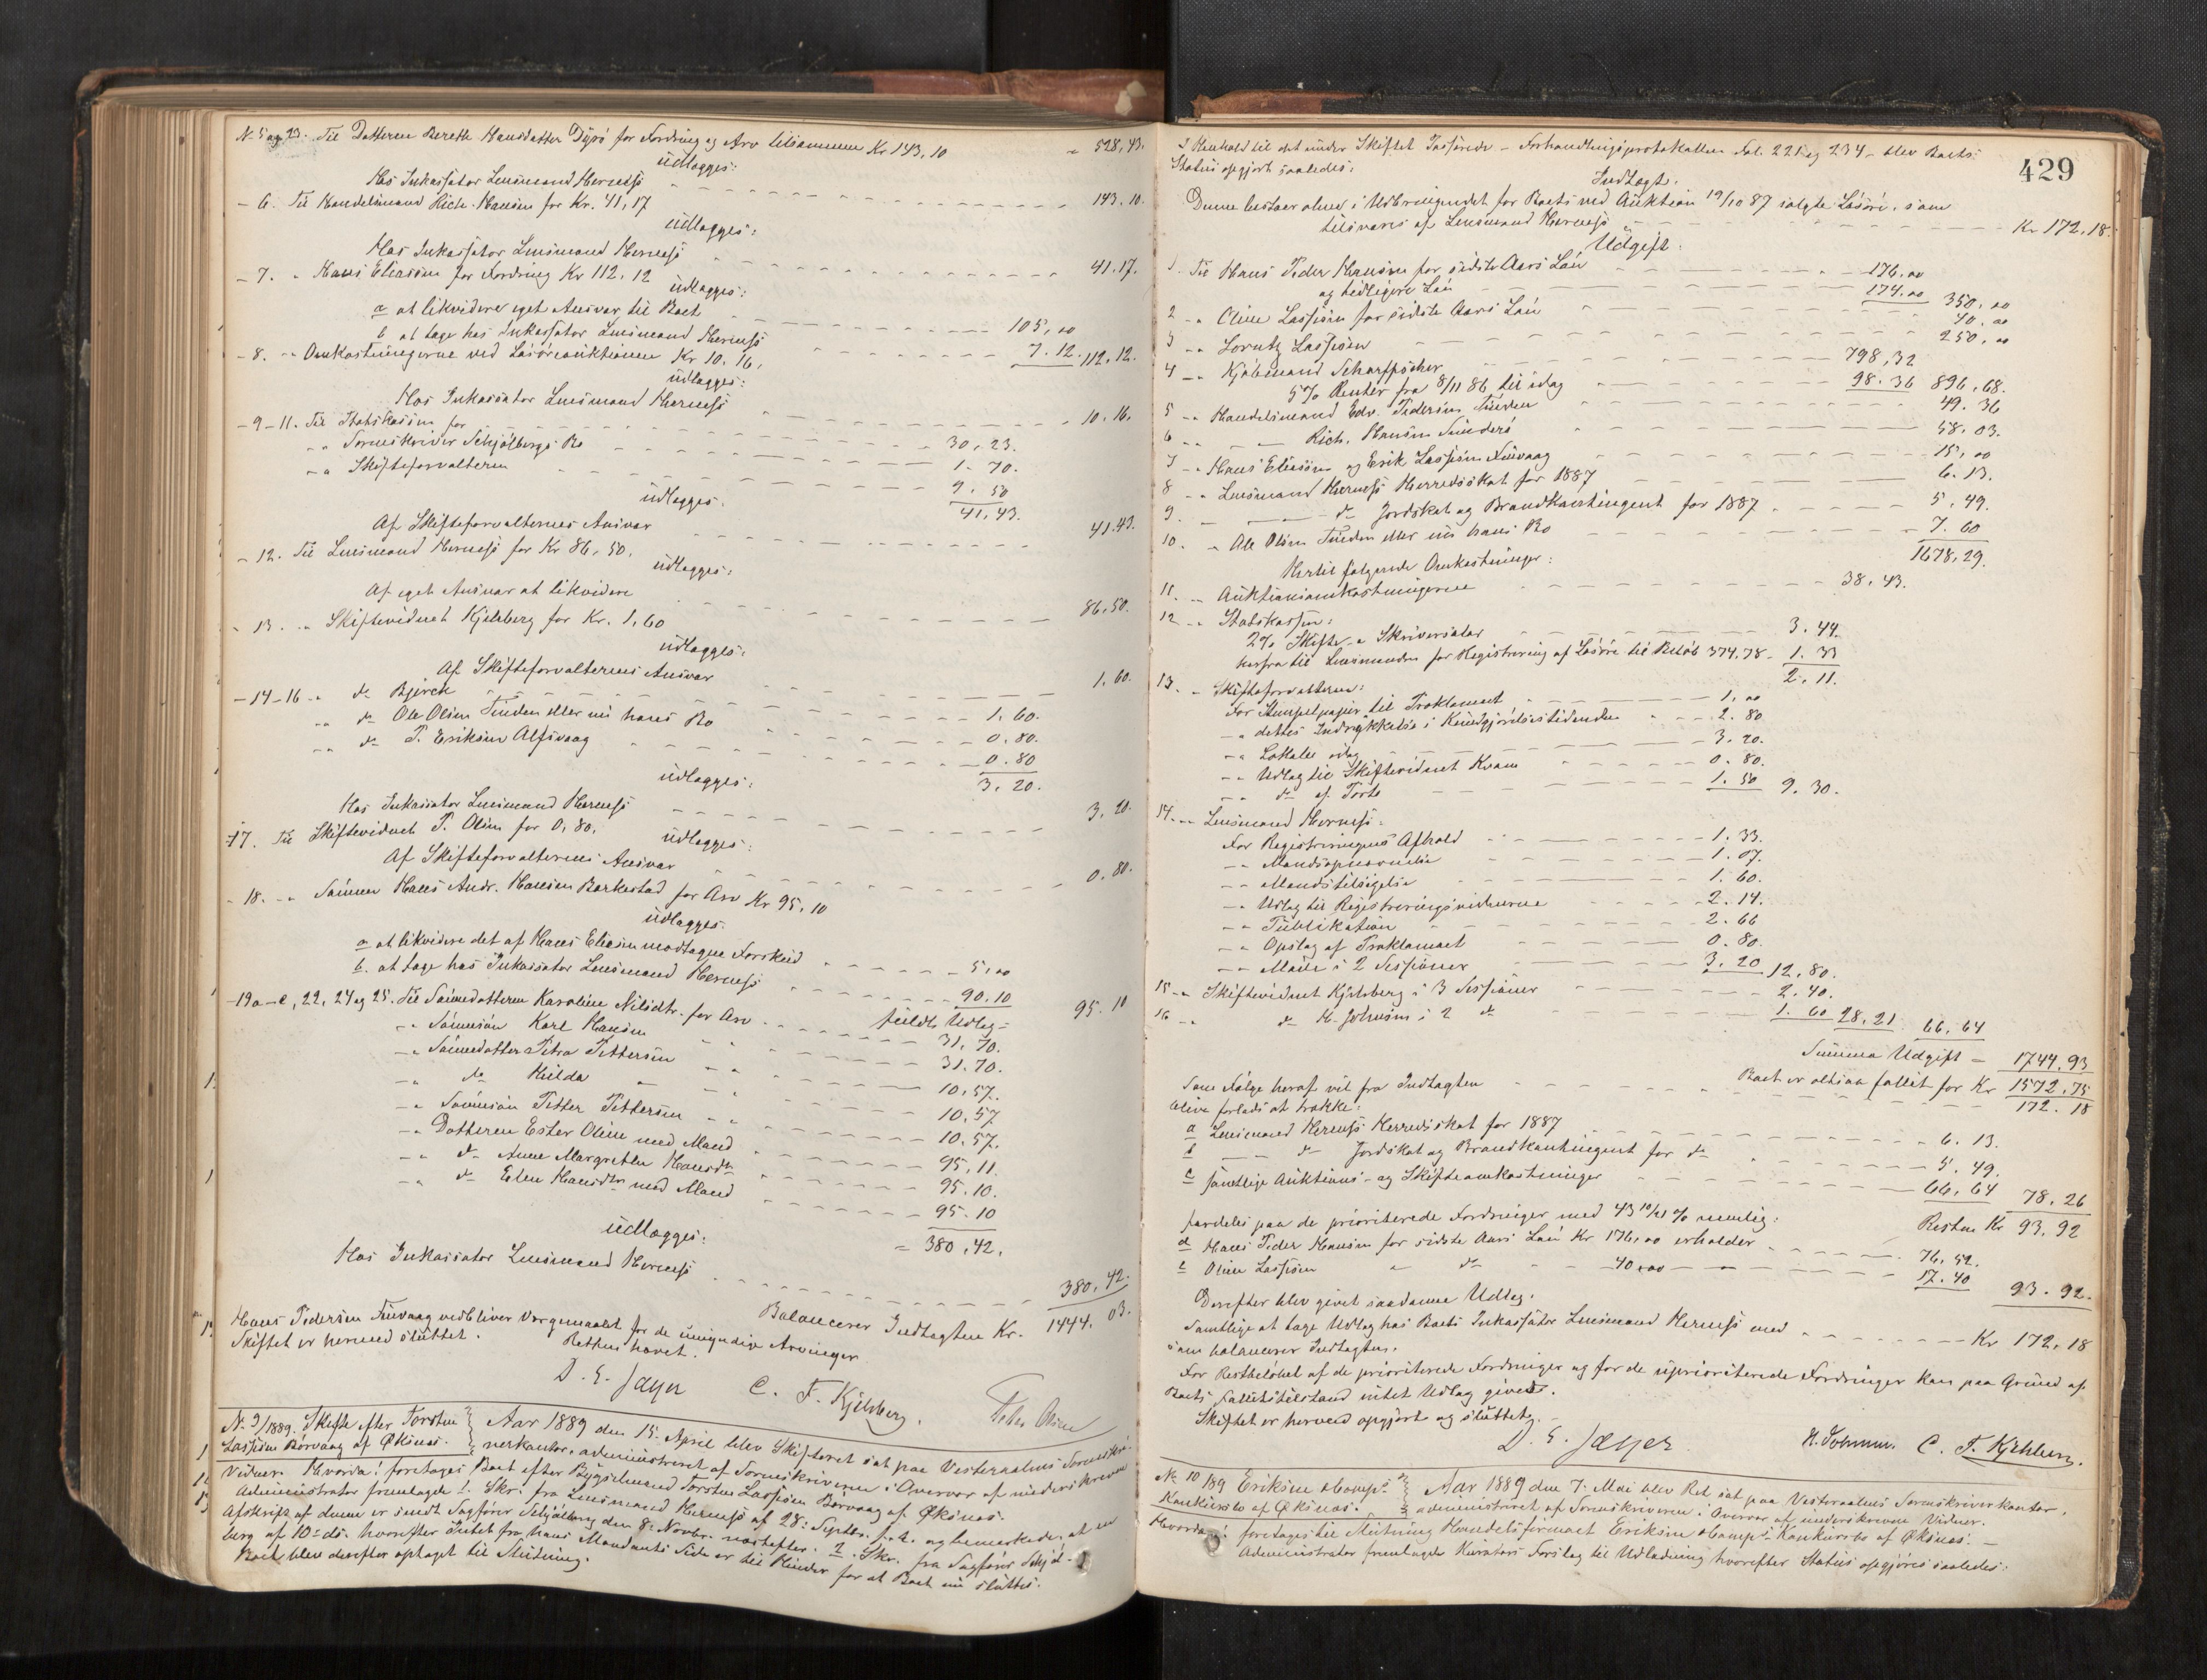 N. 5 og 23. Til Datteren Bereth Hansdatter Dyrö for Fordring og Arv tilsammen Kr 143,10 " 528,43.
udlægges:
Hos Inkassator Lensmand Herness 143.10.
- 6. Til Handelsmand Rich. Hansen for Kr. 41,17
udlægges:
Hos Inkassator LensmandHerness 41.17.
- 7. " Hans Eliassen for Fordring Kr 112,12
udlægges:
a at likvidere eget Ansvar til Boet 105,00
b at tage hos Inkassator Lensmand Herness 7.12. 112,12.
- 8. " Omkostningerne ved Løsøreauktionen Kr 10.16,
udlægges:
Hos Inkassator Lensmand Herness 10.16.
- 9-11. Til Statskassen for 30,23.
" Sorenskriver Schjølbergs Bo 1.70.
" Skifteforvalteren 9.50
41,43.
udlægges:
Af Skifteforvalterens Ansvar 41.43.
- 12. Til Lensmand Herness for Kr 86,50.
udlægges:
Af eget Ansvar at likvidere 86,50.
- 13. " Skiftevidnet Kjelsberg for Kr. 1,60
udlægges:
Af Skifteforvalterens Ansvar 1,60.
- 14-16 " do Bjerck 1,60.
" do Ole Olsen Tinden eller nu hans Bo 0.80.
" do P. Eriksen Alfsvaag 0.80
3,20.
udlægges:
Hos Inkassator Lensmand Herness 3,20.
- 17. Til Skiftevidnet P. Olsen for 0,80.
udlægges:
Af Skifteforvalterens Ansvar 0.80.
- 18. " Sønnen Hans Andr. Hansen Barkestad for Arv Kr 95,10
udlægges:
a at likvidere det af Hans Eliassen modtagne Forskud 5,00
b. at tage hos Inkassator Lensmand Herness 90.10
fuldt Udlæg = 95.10
- 19a-e, 22, 24 og 25. Til Sønnedatteren Karoline Nilsdtr. for Arv 31,70.
" Sønnesøn Karl Hansen 31.70.
" Sønnedatter Petra Pettersen 10,57.
" do Hilda 10,57
" Sønnesøn Petter Pettersen 10,57.
" Datteren Ester Oline med Mand 95,11.
" do Anne Margrethe Hansdtr 95.10.
" do Elen Hansdtr med Mand 95.10
= 380,42.
udlægges:
Hos Inkassator Lensmand Herness 380,42.
Balancerer Indtægten Kr. 1444.03.
Hans Pedersen Finvaag vedbliver Værgemaalet for de umyndige Arvinger
Skiftet er hermed sluttet.
Retten hævet.
D. E. Jæger C. F. Kjelsberg. Peder Olsen
N. 9/1889. Skifte efter Torsten
Lassesen Børvaag af Øksnes.
Aar 1889 den 15. April blev Skifteret sat paa Vesteraalens Sorenskri-
verkontor, administreret af Sorenskriveren i Overvær af underskrevne
Vidner. Hvorda: foretages Boet efter Bygselmand Torsten Lassesen Børvaag af Øksnes.
Administrator fremlagde 1. Skr. fra Lensmand Herness af 28. Septbr. f. A. og bemærkede, at en
Afskrift af denne er sendt Sagfører Schjølberg den 8. Novbr. næstefter. 2. Skr. fra Sagfører Schjøl-
berg af 10. ds. hvorefter Intet fra hans Mandants Side er til Hinder for at Boet nu sluttes.
Boet blev derefter optaget til Slutning.
429
I Henhold til det under Skiftet Passerede - Forhandlingsprotokollen Fol. 221 og 234 - blev Boets
Status opgjort saaledes:
Indtægt.
Denne bestaar alene i Udbringendet for Boets ved Auktion 19/10 87 solgte Løsøre, som
tilsvares af Lensmand Herness Kr 172,18.
Udgift:
1. Til Hans Peder Hansen for sidste Aars Løn 176,00
og tidligere Løn 174.00 350,00
2 " Oline Lassesen for sidste Aars Løn 40,00
3 " Lorntz Lassesen 250,00
4 " Kjøbmand Scharffscher 798,32
5% Renter fra 8/11 86 til idag 98.36 896,68.
5 " Handelsmand Edv. Pedersen Tinden 49.36
6 " — Rich. Hansen Tinderö 58.03.
7 " Hans Eliassen og Erik Lassesen Finvaag 15,00
8 " Lensmand Herness Herredsskat for 1887 6.13.
9. " — do Jordskat og Brandkontingent for 1887 5.49.
10. " Ole Olsen Tinden eller nu hans Bo 7.60
1678,29.
Hertil følgende Omkostninger:
11. " Auktionsomkostningerne 38.43.
12 " Statskassen:
2% Skifte- & Skriversalær 3.44.
herfra til Lensmanden for Registrering af Løsøre til Beløb 374,78 - 1.33
2.11.
13. " Skifteforvalteren:
For Stempelpapir til Proklamaet 1,00
" dettes Indrykkelse i Kundgjørelsestidenden 2.80
" Lokale idag 3.20.
" Udlæg til Skiftevidnet Kvam 0.80.
" do af Porto 1.50 9.30.
14. " Lensmand Herness:
For Registreringens Afhold 1.33.
" Mandsopnævnelse 1.07.
" Mandstilsigelse 1.60.
" Udlæg til Registreringsvidnerne 2.14.
" Publikation 2.66
" Opslag af Proklamaet 0.80.
" Møde i 2 Sessioner 3.20 12,80.
15 " Skiftevidnet Kjelsberg i 3 Sessioner 2.40.
16 " do H. Johnsen i 2 do 1.60 28,21 66,64
Summa Udgift = 1744,93
Boet er altsaa fallit for Kr 1572,75
Som Følge heraf vil fra Indtægten 172.18
blive forlods at trække:
a Lensmand Herness Herredsskat for 1887 6.13.
b — do Jordskat og Brandkontingent for do 5.49.
c samtlige Auktions- og Skifteomkostninger 66,64 78,26
Resten Kr 93,92
fordeles paa de prioriterede Fordringer med 43 10/21 % nemlig:
d Hans Peder Hansen for sidste Aars Løn Kr 176,00 erholder 76,52.
e Oline Lassesen " do - 40,00 17.40
93.92.
Derefter blev givet saadanne Udlæg.
Samtlige at tage Udlæg hos Boets Inkassator Lensmand Herness med Kr 172,18
som balancerer Indtægten.
For Restbeløbet af de prioriterede Fordringer og for de uprioriterede Fordringer kan paa Grund af
Boets Fallittilstand intet Udlæg gives.
Skiftet er herved opgjort og sluttet.
D. E. Jæger H. Johnsen. C. F. Kjelsberg.
No 10/89 Eriksen & Comps
Konkursbo af Øksnes.
Aar 1889 den 7. Mai blev Ret sat paa Vesteraalens Sorenskriverkontor,
administreret af Sorenskriveren i Overvær af underskrevne Vidner.
Hvorda: foretages til Slutning Handelsfirmaet Eriksen & Comps Konkursbo af Øksnes. —
Administrator fremlagde Kurators Forslag til Udlodning hvorefter Status opgjøres saaledes: